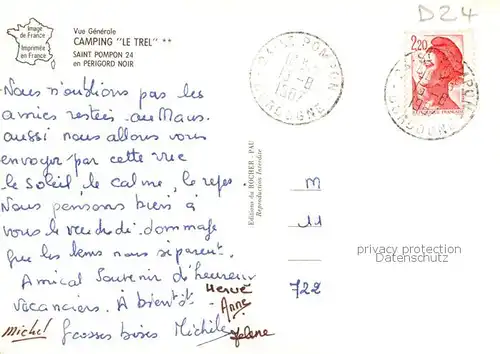 Image
de France
Imprimée
en France
Vue Générale
CAMPING "LE TREL" **
SAINT POMPON 24
en PERIGORD NOIR
D24
2,20
Nous n'oublions pas les
amies restées au Mans.
aussi nous allons vous
envoyer par cette vue
le soleil, le calme, le repos.
Nous pensons bien à
vous le vendredi. dommage
que les kems nous séparent.
Amical Souvenir d'heureux
vacanciers. A bientôt
Hervé
Anne
Michel Grosses bises Michèle
Helene
Editions du ROCHER - PAU
Reproduction Interdite
M
11
722
24 ST POMPON
-8
1987
DORDOGNE
REPUBLIQUE FRANÇAISE
privacy protection
Datenschutz